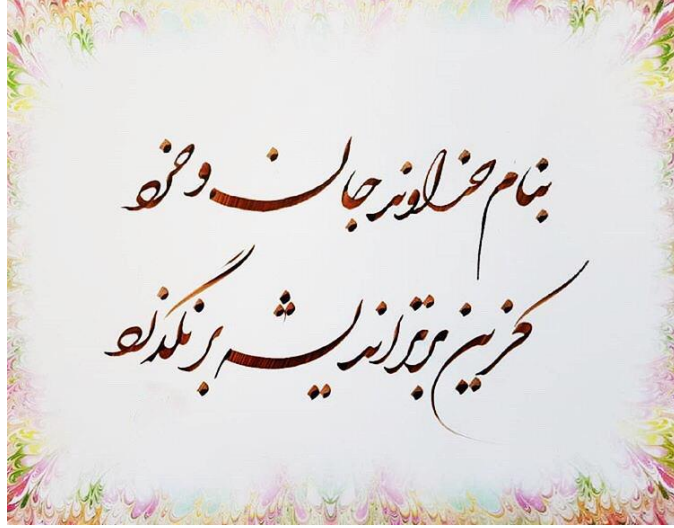 بنام خداوند جان و خرد
کزین برتر اندیشه برنگذرد